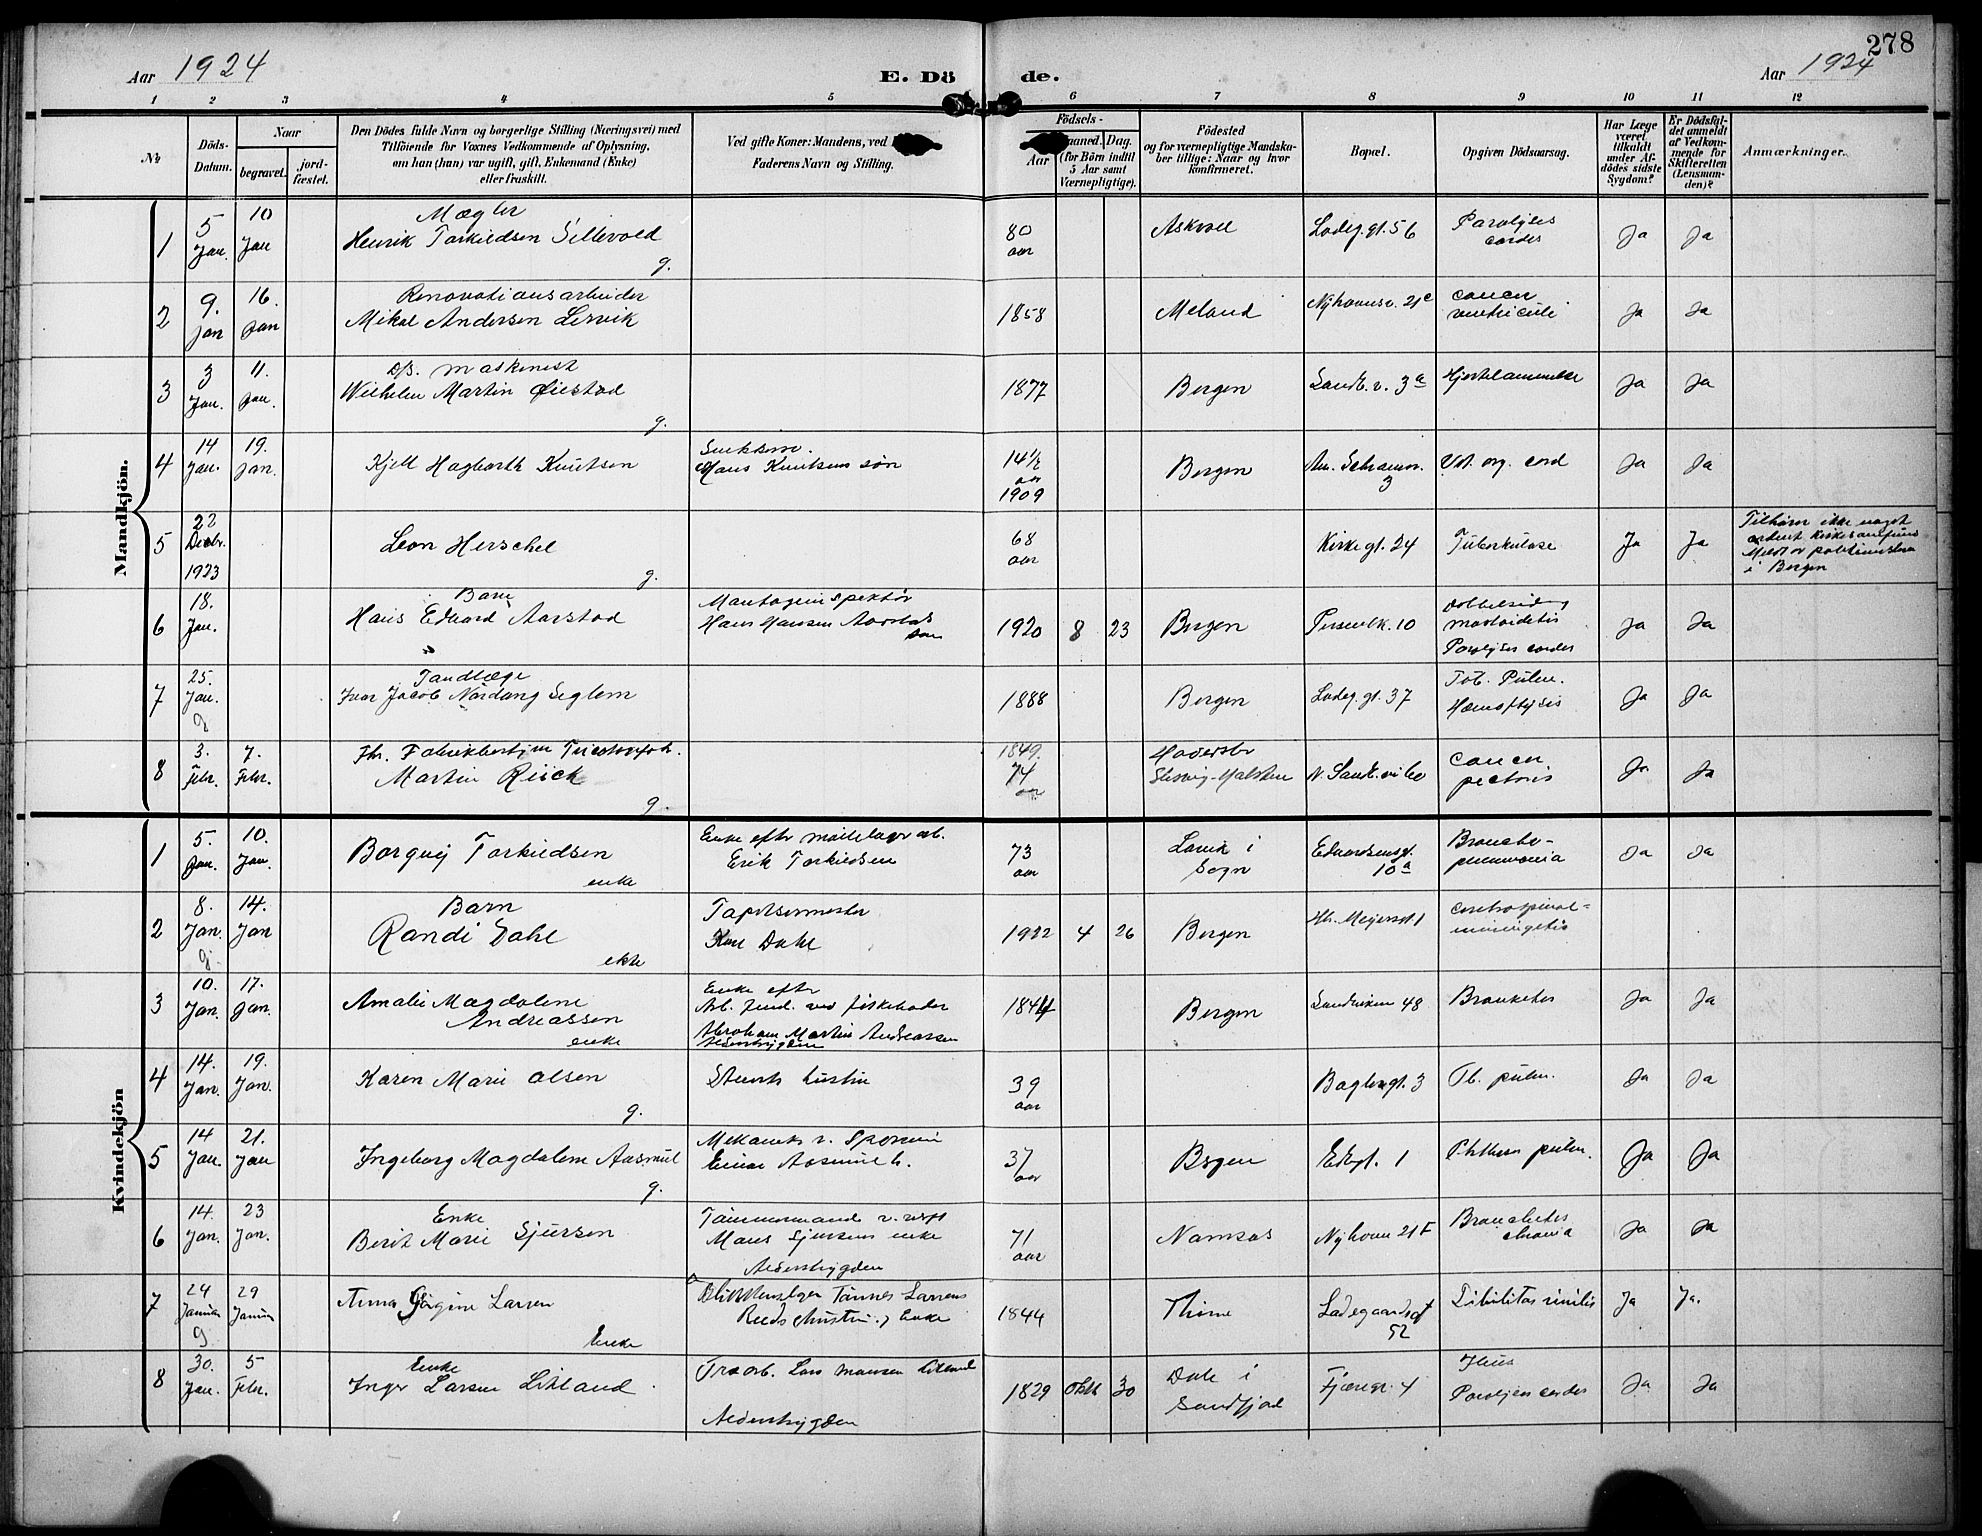 278
Aar 1924
E. Dö de.
Aar 1924
1 2 3 4 5 6 7 8 9 10 11 12
No
Döds-Datum.
Naar
begravet.
jord-fæstet.
Den Dödes fulde Navn og borgerlige Stilling (Næringsvei) med
Tilföiende for Voxnes Vedkommende af Oplysning,
om han (hun) var ugift, gift, Enkemand (Enke)
eller fraskilt.
Ved gifte Koner: Mandens, ved
Faderens Navn og Stilling.
Födsels-
Aar
Maaned. Dag.
(for Börn indtil
5 Aar samt
Værnepligtige).
Födested
og for værnepligtige Mandska-
ber tillige: Naar og hvor
konfirmeret.
Bopæl.
Opgiven Dödsaarsag.
Har Læge
været
tilkaldt
under Af-
dödes sidste
Sygdom?
Er Dödsfal-
det anmeldt
af Vedkom-
mende for
Skifteretten
(Lensman-
den)?
Anmærkninger.
Mandkjön.
1 5 Jan. 10 Jan Mægler
Henrik Torkildsen Sellevold g. 80 aar Askvoll Ladeg. gt. 56 Paralysis cordis Ja Ja
2 9. Jan 16. Jan Renovationsarbeider
Mikal Andersen Lervik 1858 Meland Nyhavnsv. 21c cancer ventriculi Ja Ja
3 3 Jan. 11. Jan. D/S. maskinist
Wilhelm Martin Øiestad g. 1877 Bergen Sandv. v. 3a Hjertelammelse Ja Ja
4 14 Jan. 19. Jan. Kjell Hagbarth Knutsen
Hans Knutsens søn 14½ aar 1909 Bergen 3 Vit. org. cord Ja Ja
5 22 Decbr. 1923 Leon Herschel g. 68 aar Kirkegt. 24 Tuberkulose Ja Ja Tilhører ikke noget
i Bergen
6 18. Jan. Barn
Hans Edvard Aarstad Hans Hansen Aarstad søn 1920 8 23 Bergen Persenbk. 10 Dobbelsidig mastoiditis
Paralysis cordis Ja Ja
7 25. Jan. g Tandlæge
Ivar Jacob Nordang Seglem 1888 Bergen Ladeg. gt. 37 Tub. Pulm.
Hæmoptysis Ja Ja
8 3. Febr. 7. Febr. Martin Riisch g. 1849 74 aar Haderslev
Slesvig-Holsten N. Sandv. vei 60 Cancer pectoris Ja Ja
Kvindekjön
1 5. Jan. 10. Jan. Borgny Torkildsen enke Enke efter
Erik Torkildsen 73 aar Lavik i Sogn Edvardsensgt. 10a Broncho-
pneumonia Ja Ja
2 8. Jan. g. 14. Jan Barn
Randi Dahl ekte Tapetsermester
Dahl 1922 4 26 Bergen Hr. Meyersgt 1 Cerebrospinal-
meningitis
3 10. Jan. 17. Jan. Amalie Magdalene
Andreassen enke Enke efter
Abraham Martin Andreassen
Alderstrygden 1844 Bergen Sandviken 48 Bronkitis Ja Ja
4 14. Jan. 19. Jan. Karen Marie Olsen g. Stuerts hustru 39 aar Baglergt. 3 Tb. pulm. Ja Ja
5 14 Jan. 21. Jan Ingeborg Magdalene Aasmul g. Mekaniker v. Sporvei
Einar Aasmul h. 37 aar Bergen Ekregt. 1 Phthisis pulm. Ja Ja
6 14. Jan. 23 Jan. Enke
Berit Marie Sjursen Tømmermand v. verft
Mons Sjursens enke
Alderstrygden 71 aar Namsos Nyhavn 21F Bronchitis chronica Ja Ja
7 24 Januar g 29 Januar Anna Gurgine Larsen Enke Blikkenslager Tønnes Larsens
Enke 1844 Thime Ladegaardsgt 52 Debilitas senilis Ja Ja.
8 30. Jan. 5 Febr. Enke
Inger Larsen Litland Lars Monsen Litland
Alderstrygden 1829 Okt 30 Dale i
Sundfjord Fjæregr. 4 Ileus
Paralysis cordis Ja Ja